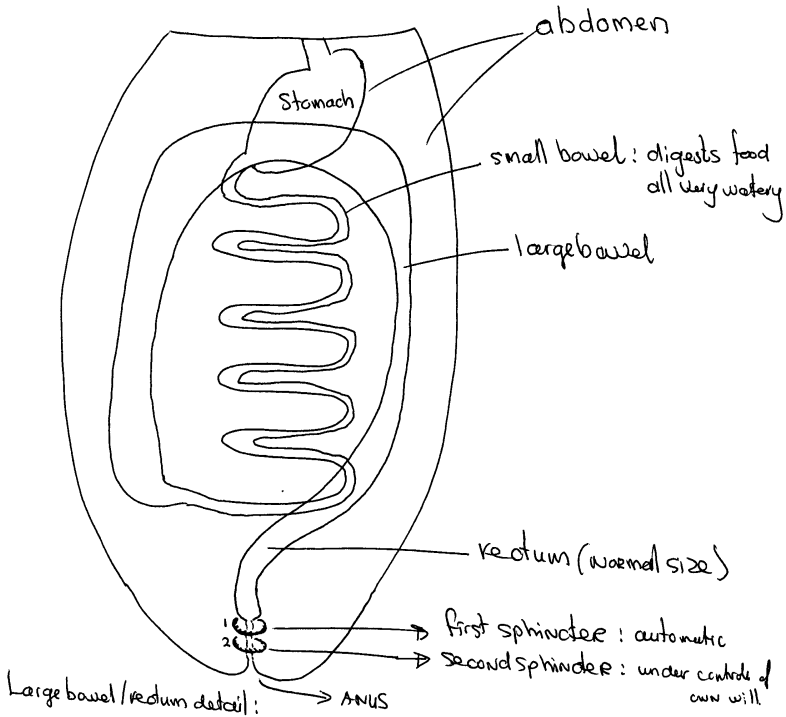 abdomen
Stomach
small bowel: digests food
all very watery
large bowel
rectum (normal size)
1
first sphincter: automatic
2
second sphincter: under controle of
own will
Large bowel/rectum detail:
ANUS